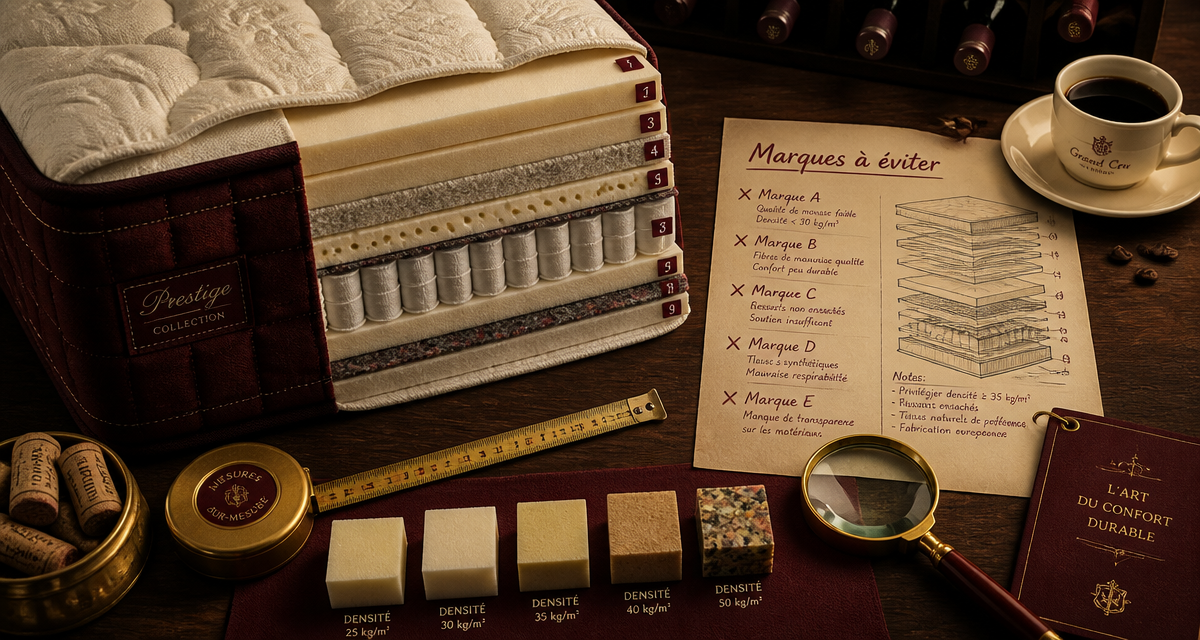 Prestige
COLLECTION
7
3
4
3
9
Marques à éviter
Marque A
Qualité de mousse faible
Densité < 30 kg/m³
Marque B
Fibres de mauvaise qualité
Confort peu durable
Marque C
Soutien insuffisant
Marque D
synthétiques
Mauvaise respirabilité
Marque E
Manque de transparence
sur les matériaux
Notes:
- Privilégier densité ≥ 35 kg/m³
- Tissus naturels de
- Fabrication
Grand Cru
MESURES
L'ART
DU CONFORT
DURABLE
DENSITÉ
25 kg/m³
DENSITÉ
30 kg/m³
DENSITÉ
35 kg/m³
DENSITÉ
40 kg/m³
DENSITÉ
50 kg/m³